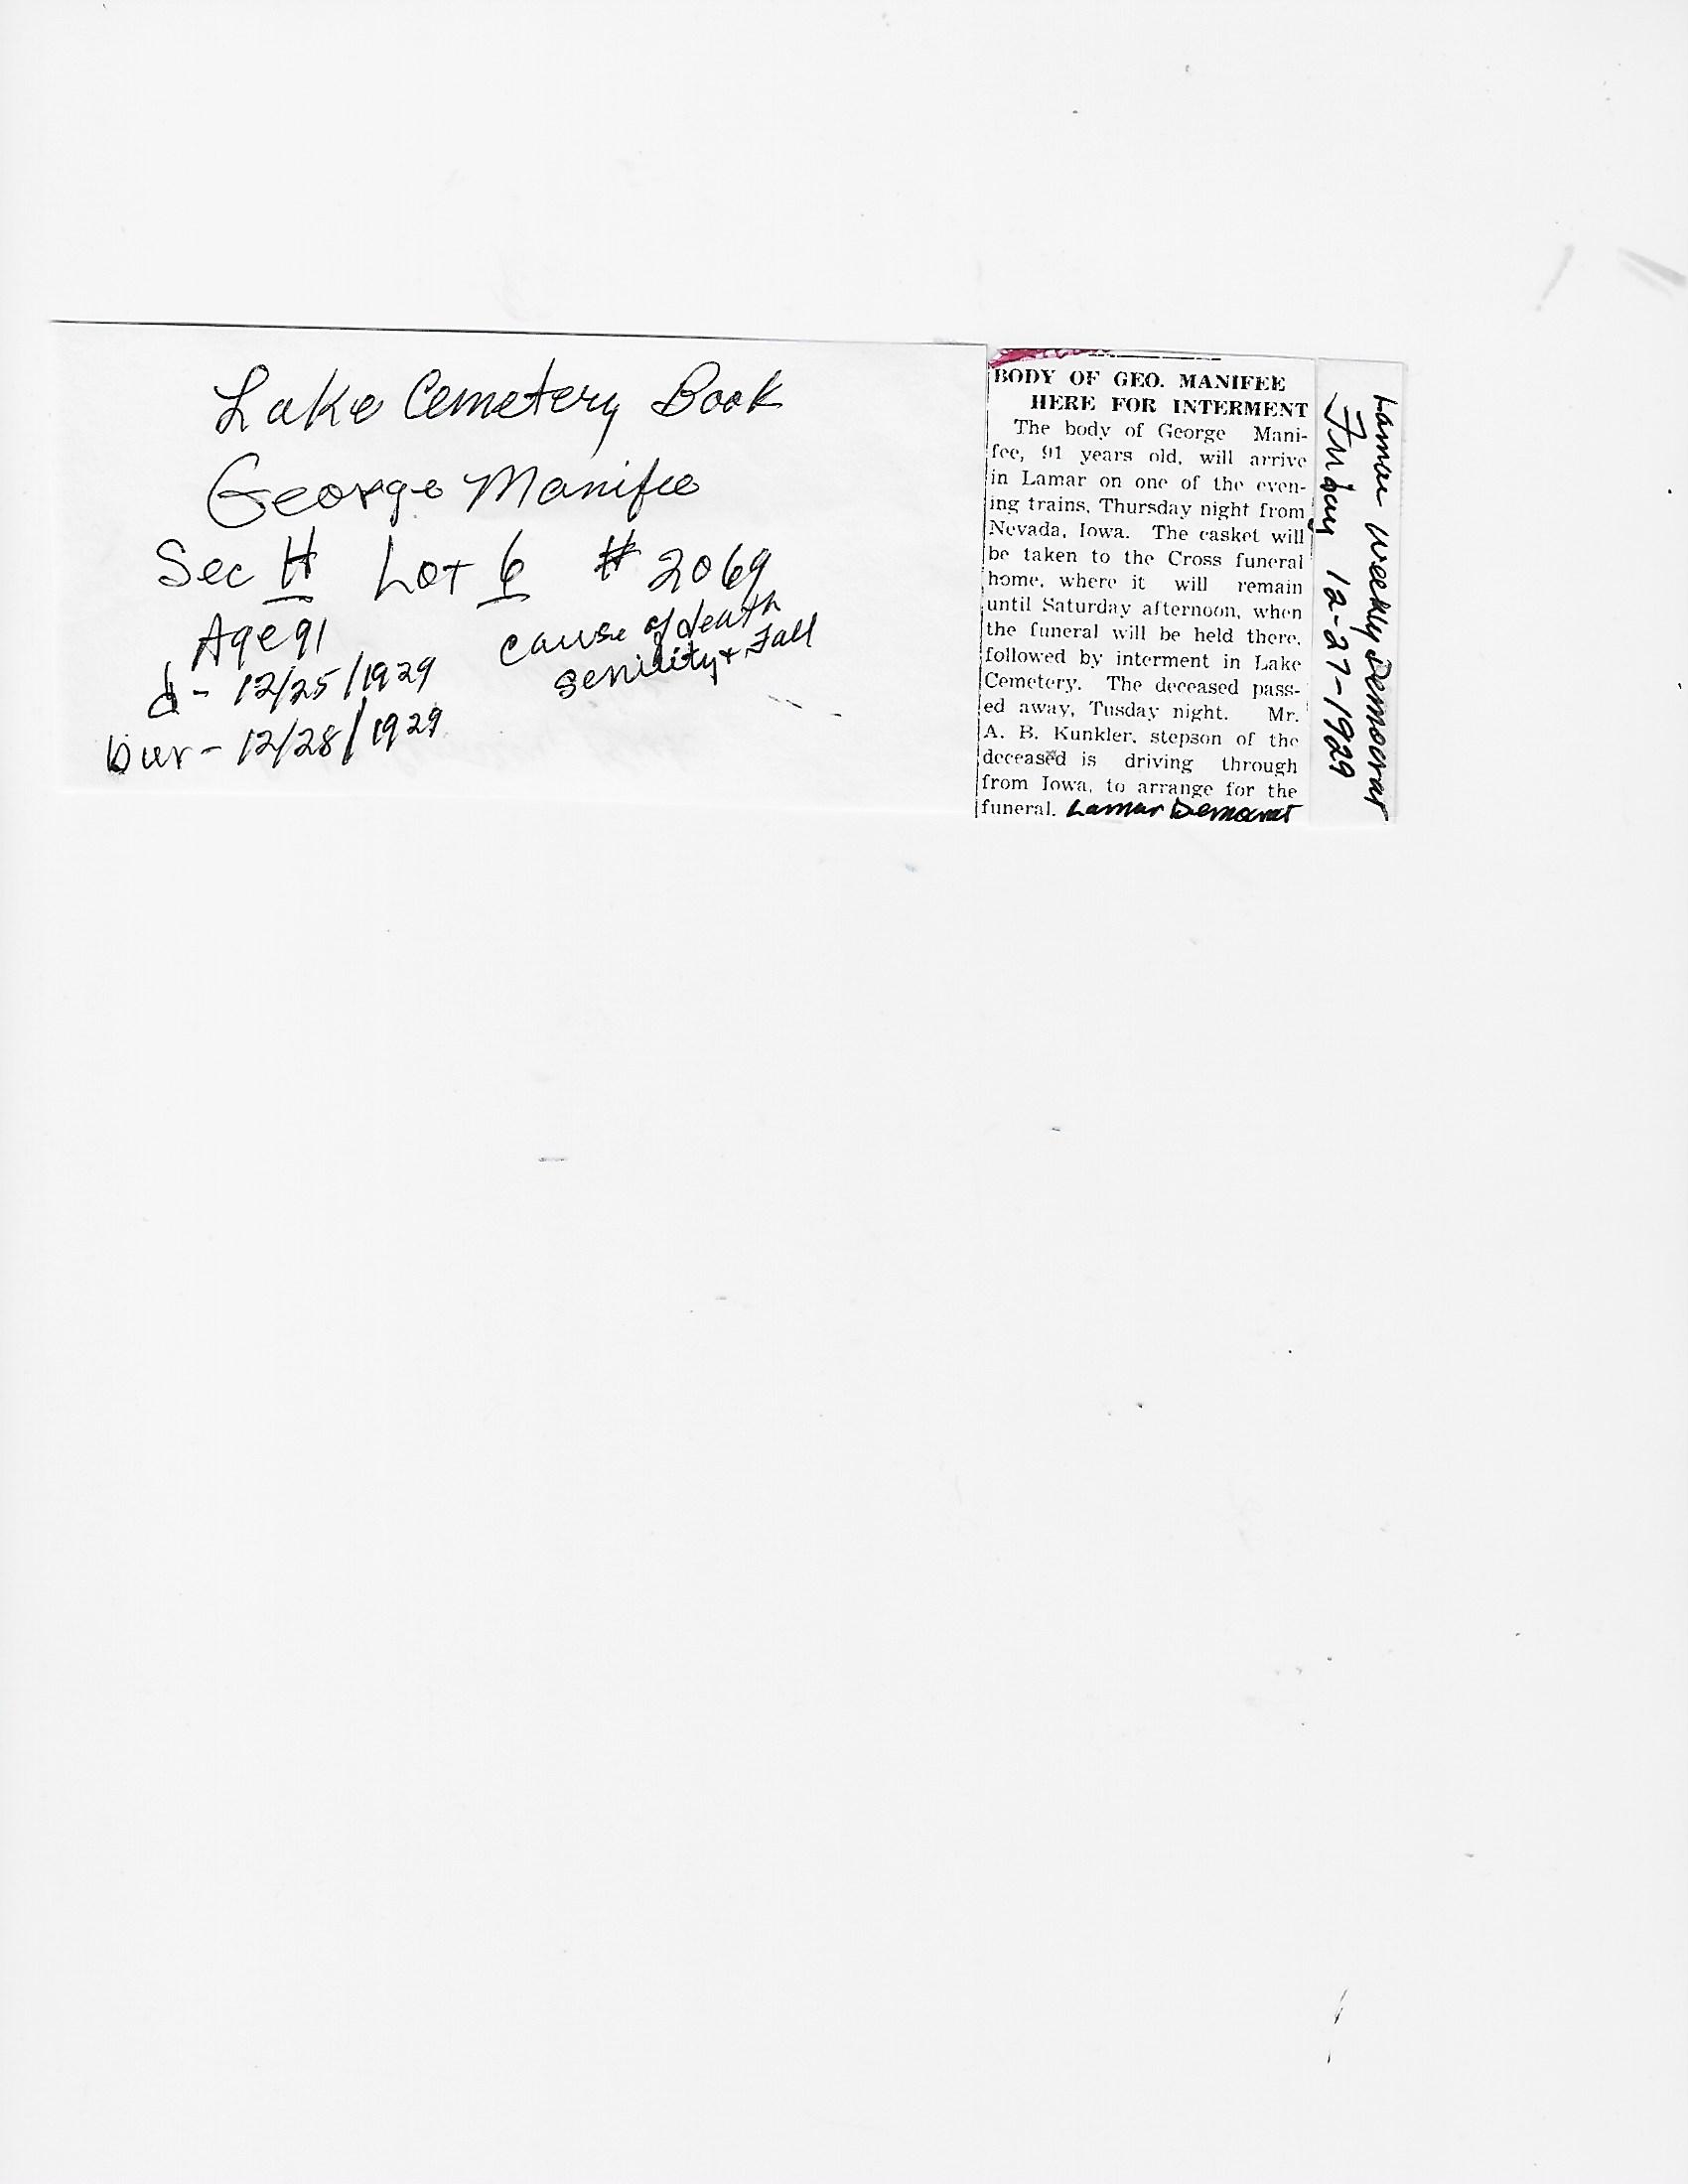 Lake Cemetery Book
George Manifee
Sec H Lot 6 # 2069
Age 91
cause of death
senility + Fall
d - 12/25/1929
bur - 12/28/1929
BODY OF GEO. MANIFEE
HERE FOR INTERMENT
The body of George Mani-
fee, 91 years old, will arrive
in Lamar on one of the even-
ing trains, Thursday night from
Nevada, Iowa. The casket will
be taken to the Cross funeral
home, where it will remain
until Saturday afternoon, when
the funeral will be held there,
followed by interment in Lake
Cemetery. The deceased pass-
ed away, Tusday night. Mr.
A. B. Kunkler, stepson of the
deceased is driving through
from Iowa, to arrange for the
funeral. Lamar Democrat
Lamar Weekly Democrat
Friday 12-27-1929